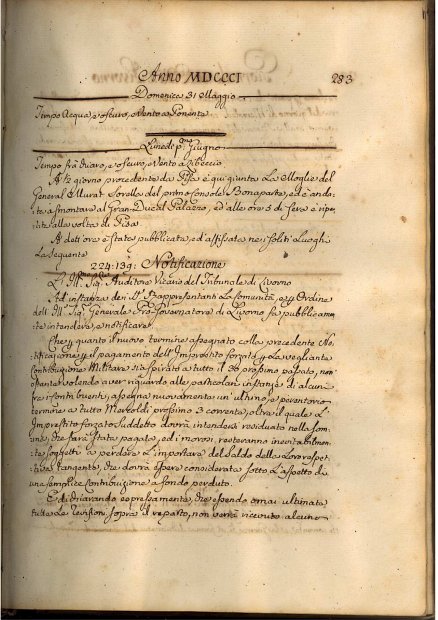 Anno MDCCCI
283
Domenica 31 Maggio
Tempo Acqua, e oscuro, Vento a Ponente
Lunedì p.º Giugno
Tempo frà chiaro, e oscuro, Vento a Libeccio
A ½ giorno procedente da Pisa è quì giunta La Moglie del
General Murat Sorella del primo Console Bonaparte, ed è anda=
ta a smontare al Gran Ducal Palazzo, ed alle ore 5 di Sera è ripar=
tita alla volta di Pisa
A dett'ore è stata pubblicata, ed affissata nei soliti Luoghi
La Seguente
224:139: Notificazione
L'Ill: Sig: Auditore Vicario del Tribunale di Livorno
Ad instanza dei Rappresentanti La Comunità, e Ordine
dell'Ill: Sig: Generale Pro-Governatore di Livorno fa pubblicamen=
te intendere, e notificare
Che quanto il nuovo termine assegnato colla precedente No=
tificazione il pagamento dell'Imprestito forzato La vegliante
Contribuzione Militare sia spirato a tutto il dì 30 prossimo passato, non
ostante volendo aver riguardo alle particolari instanze di alcuni
fra i contribuenti, assegna nuovamente un ultimo, e perentorio
termine a tutto Mercoldì prossimo 3 corrente, oltre il quale L'
Imprestito forzato Suddetto dovrà intendersi residuato nella Som=
ma, che sarà Stata pagata, ed i morosi resteranno inevitabilmen=
te soggetti a perdere L'importare del Saldo della Loro respet=
tiva tangente, che dovrà essere considerata sotto L'aspetto di
una semplice Contribuzione a fondo perduto.
E dichiarando espressamente, che essendo omai ultimate
tutte Le sopra il reparto, non verrà ricevuto alcuno